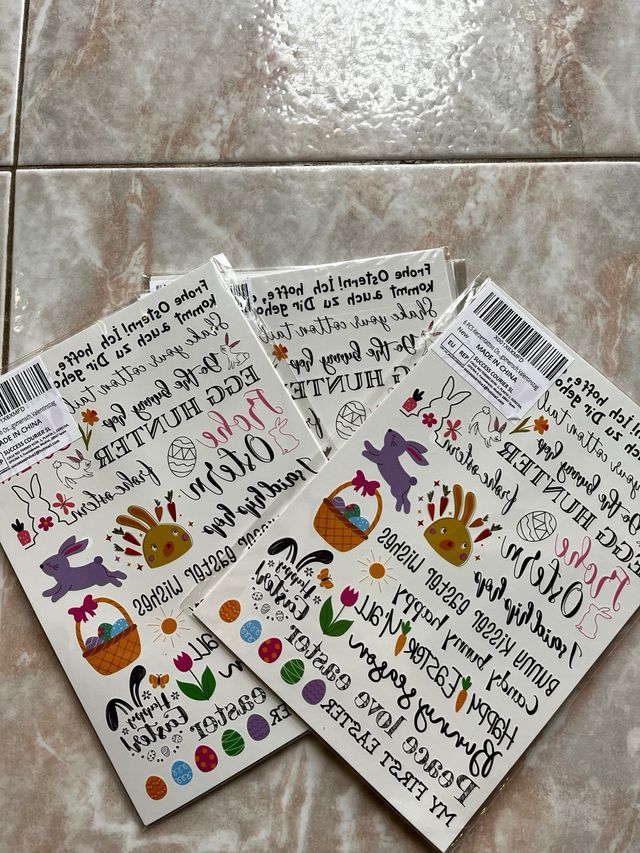 Frohe Ostern! Ich hoffe,
kommt auch zu Dir geho
Shake your cotton tail
Do the bunny hop
EGG HUNTER
frohe ostern
Frohe
Ostern
I said hip hop
easter wishes
Happy
Easter!
Y'ALL
easter
Frohe Ostern! Ich hoffe,
kommt auch zu Dir geho
Shake your cotton tail
Do the bunny hop
EGG HUNTER
New
MADE IN CHINA
EU
REP
SUCCESS COURIER SL
MADE IN CHINA
REP
SUCCESS COURIER SL
Ich hoffe,
zu Dir geho
cotton tail
Do the bunny hop
EGG HUNTER
frohe ostern
Frohe
Ostern
I said hip hop
BUNNY KISSES EASTER WISHES
candy bunny happy
Happy EASTER Y'ALL
Bunny season
Peace love easter
MY FIRST EASTER
Happy
Easter!